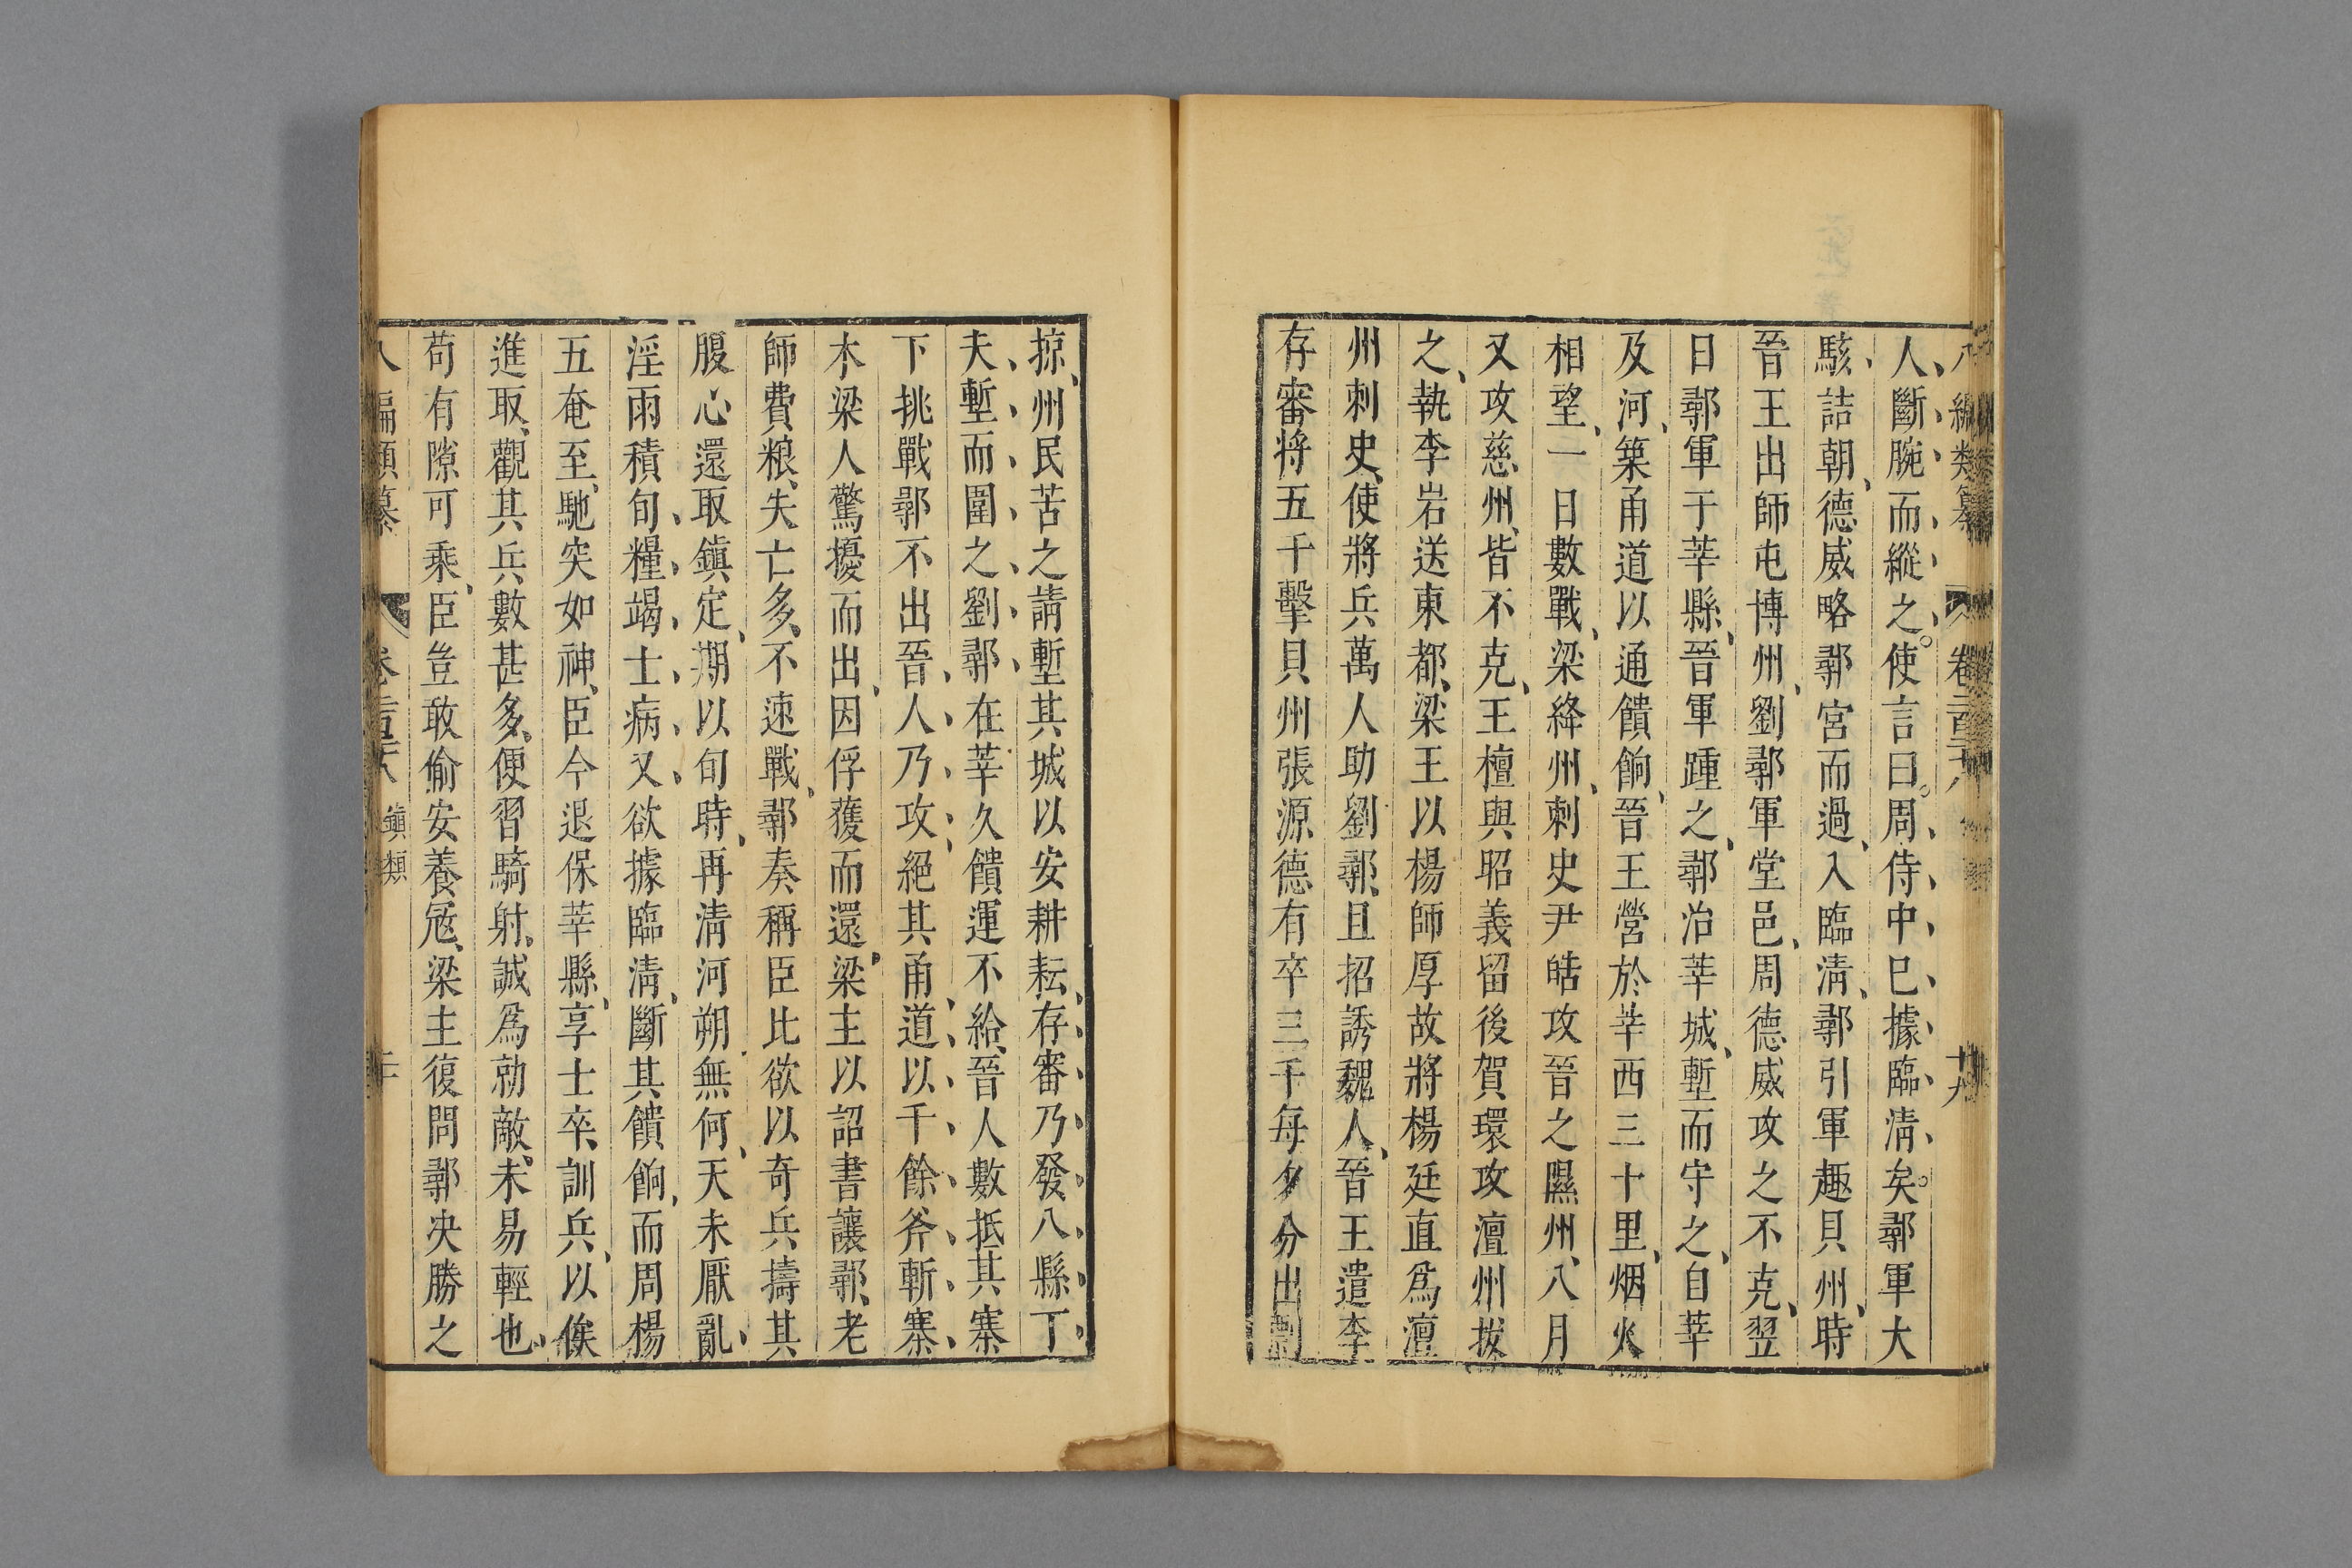 八編類纂 卷二百三十八 十九
人斷腕而縱之使言曰周侍中已據臨清矣鄩軍大
駭詰朝德威略鄩宮而過入臨清鄩引軍趣貝州時
晉王出師屯博州劉鄩軍堂邑周德威攻之不克翌
日鄩軍于莘縣晉軍踵之鄩治莘城塹而守之自莘
及河築甬道以通饋餉晉王營於莘西三十里烟火
相望一日數戰梁絳州刺史尹皓攻晉之隰州八月
又攻慈州皆不克王檀與昭義留後賀環攻澶州拔
之執李岩送東都梁王以楊師厚故將楊廷直爲澶
州刺史使將兵萬人助劉鄩且招誘魏人晉王遣李
存審將五千擊貝州張源德有卒三千每夕分出剽
掠州民苦之請塹其城以安耕耘存審乃發八縣丁
夫塹而圍之劉鄩在莘久饋運不給晉人數抵其寨
下挑戰鄩不出晉人乃攻絕其甬道以千餘斧斬寨
木梁人驚擾而出因俘獲而還梁主以詔書讓鄩老
師費粮失亡多不速戰鄩奏稱臣比欲以奇兵擣其
腹心還取鎮定期以旬時再清河朔無何天未厭亂
淫雨積旬糧竭士病又欲據臨清斷其饋餉而周楊
五奄至馳突如神臣今退保莘縣享士卒訓兵以俟
進取觀其兵數甚多便習騎射誠爲勍敵未易輕也
苟有隙可乘臣豈敢偷安養寇梁主復問鄩決勝之
八編類纂 卷二百三十八 鎮類 二十